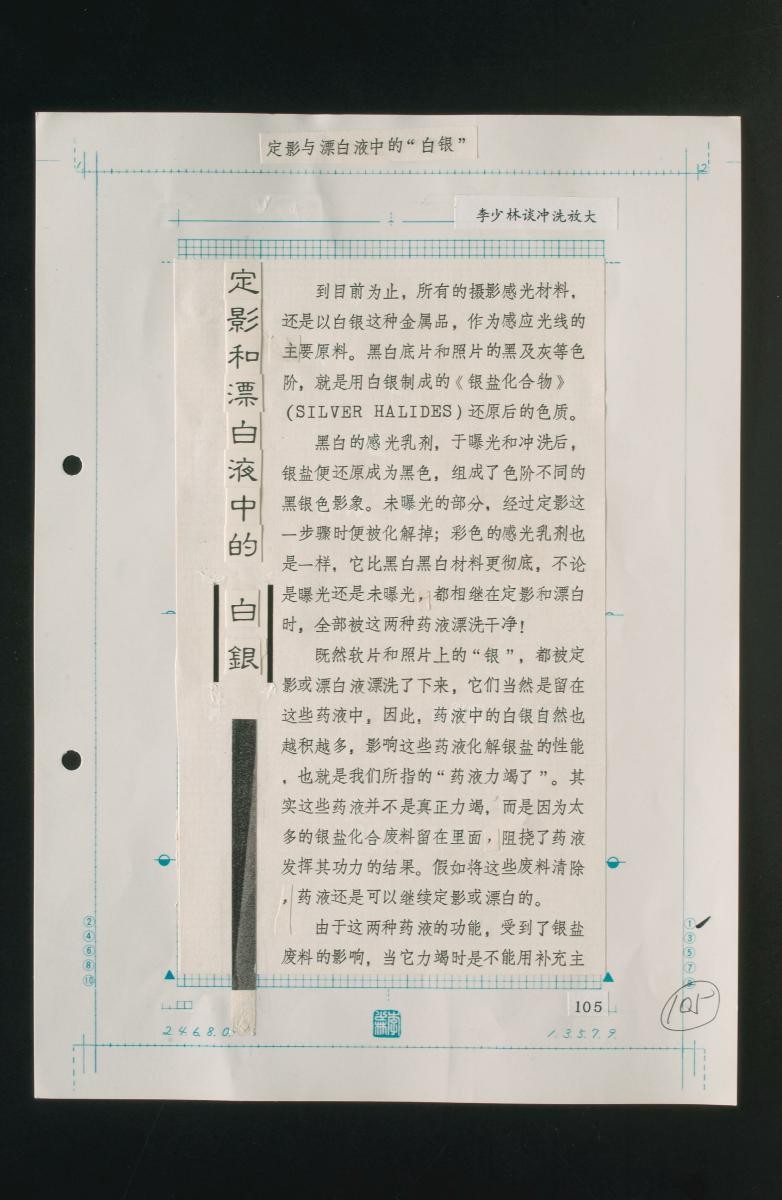 定影与漂白液中的“白银”
李少林谈冲洗放大
定影和漂白液中的 白銀
到目前为止，所有的摄影感光材料，
还是以白银这种金属品，作为感应光线的
主要原料。黑白底片和照片的黑及灰等色
阶，就是用白银制成的《银盐化合物》
(SILVER HALIDES)还原后的色质。
黑白的感光乳剂，于曝光和冲洗后，
银盐便还原成为黑色，组成了色阶不同的
黑银色影象。未曝光的部分，经过定影这
一步骤时便被化解掉；彩色的感光乳剂也
是一样，它比黑白黑白材料更彻底，不论
是曝光还是未曝光，都相继在定影和漂白
时，全部被这两种药液漂洗干净！
既然软片和照片上的“银”，都被定
影或漂白液漂洗了下来，它们当然是留在
这些药液中，因此，药液中的白银自然也
越积越多，影响这些药液化解银盐的性能
，也就是我们所指的“药液力竭了”。其
实这些药液并不是真正力竭，而是因为太
多的银盐化合废料留在里面，阻挠了药液
发挥其功力的结果。假如将这些废料清除
，药液还是可以继续定影或漂白的。
由于这两种药液的功能，受到了银盐
废料的影响，当它力竭时是不能用补充主
② ①
④ ③
⑥ ⑤
⑧ ⑦
⑩
105
105
2 4 6 8 0
1 3 5 7 9
12